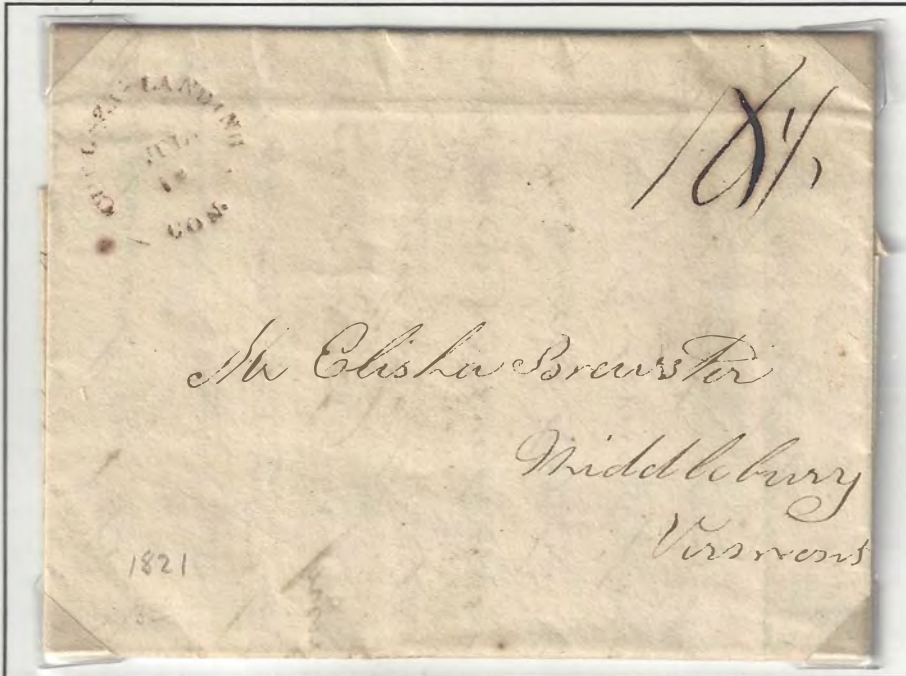 CHELSEA LANDING
JUL
CON.
18½
Mr Elisha Brewster
Middlebury
Vermont
1821